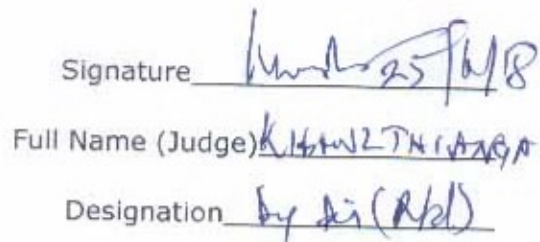 Signature 25/6/18
Full Name (Judge) KHAWLTHIANGA
Designation Dy Dir (R/d)